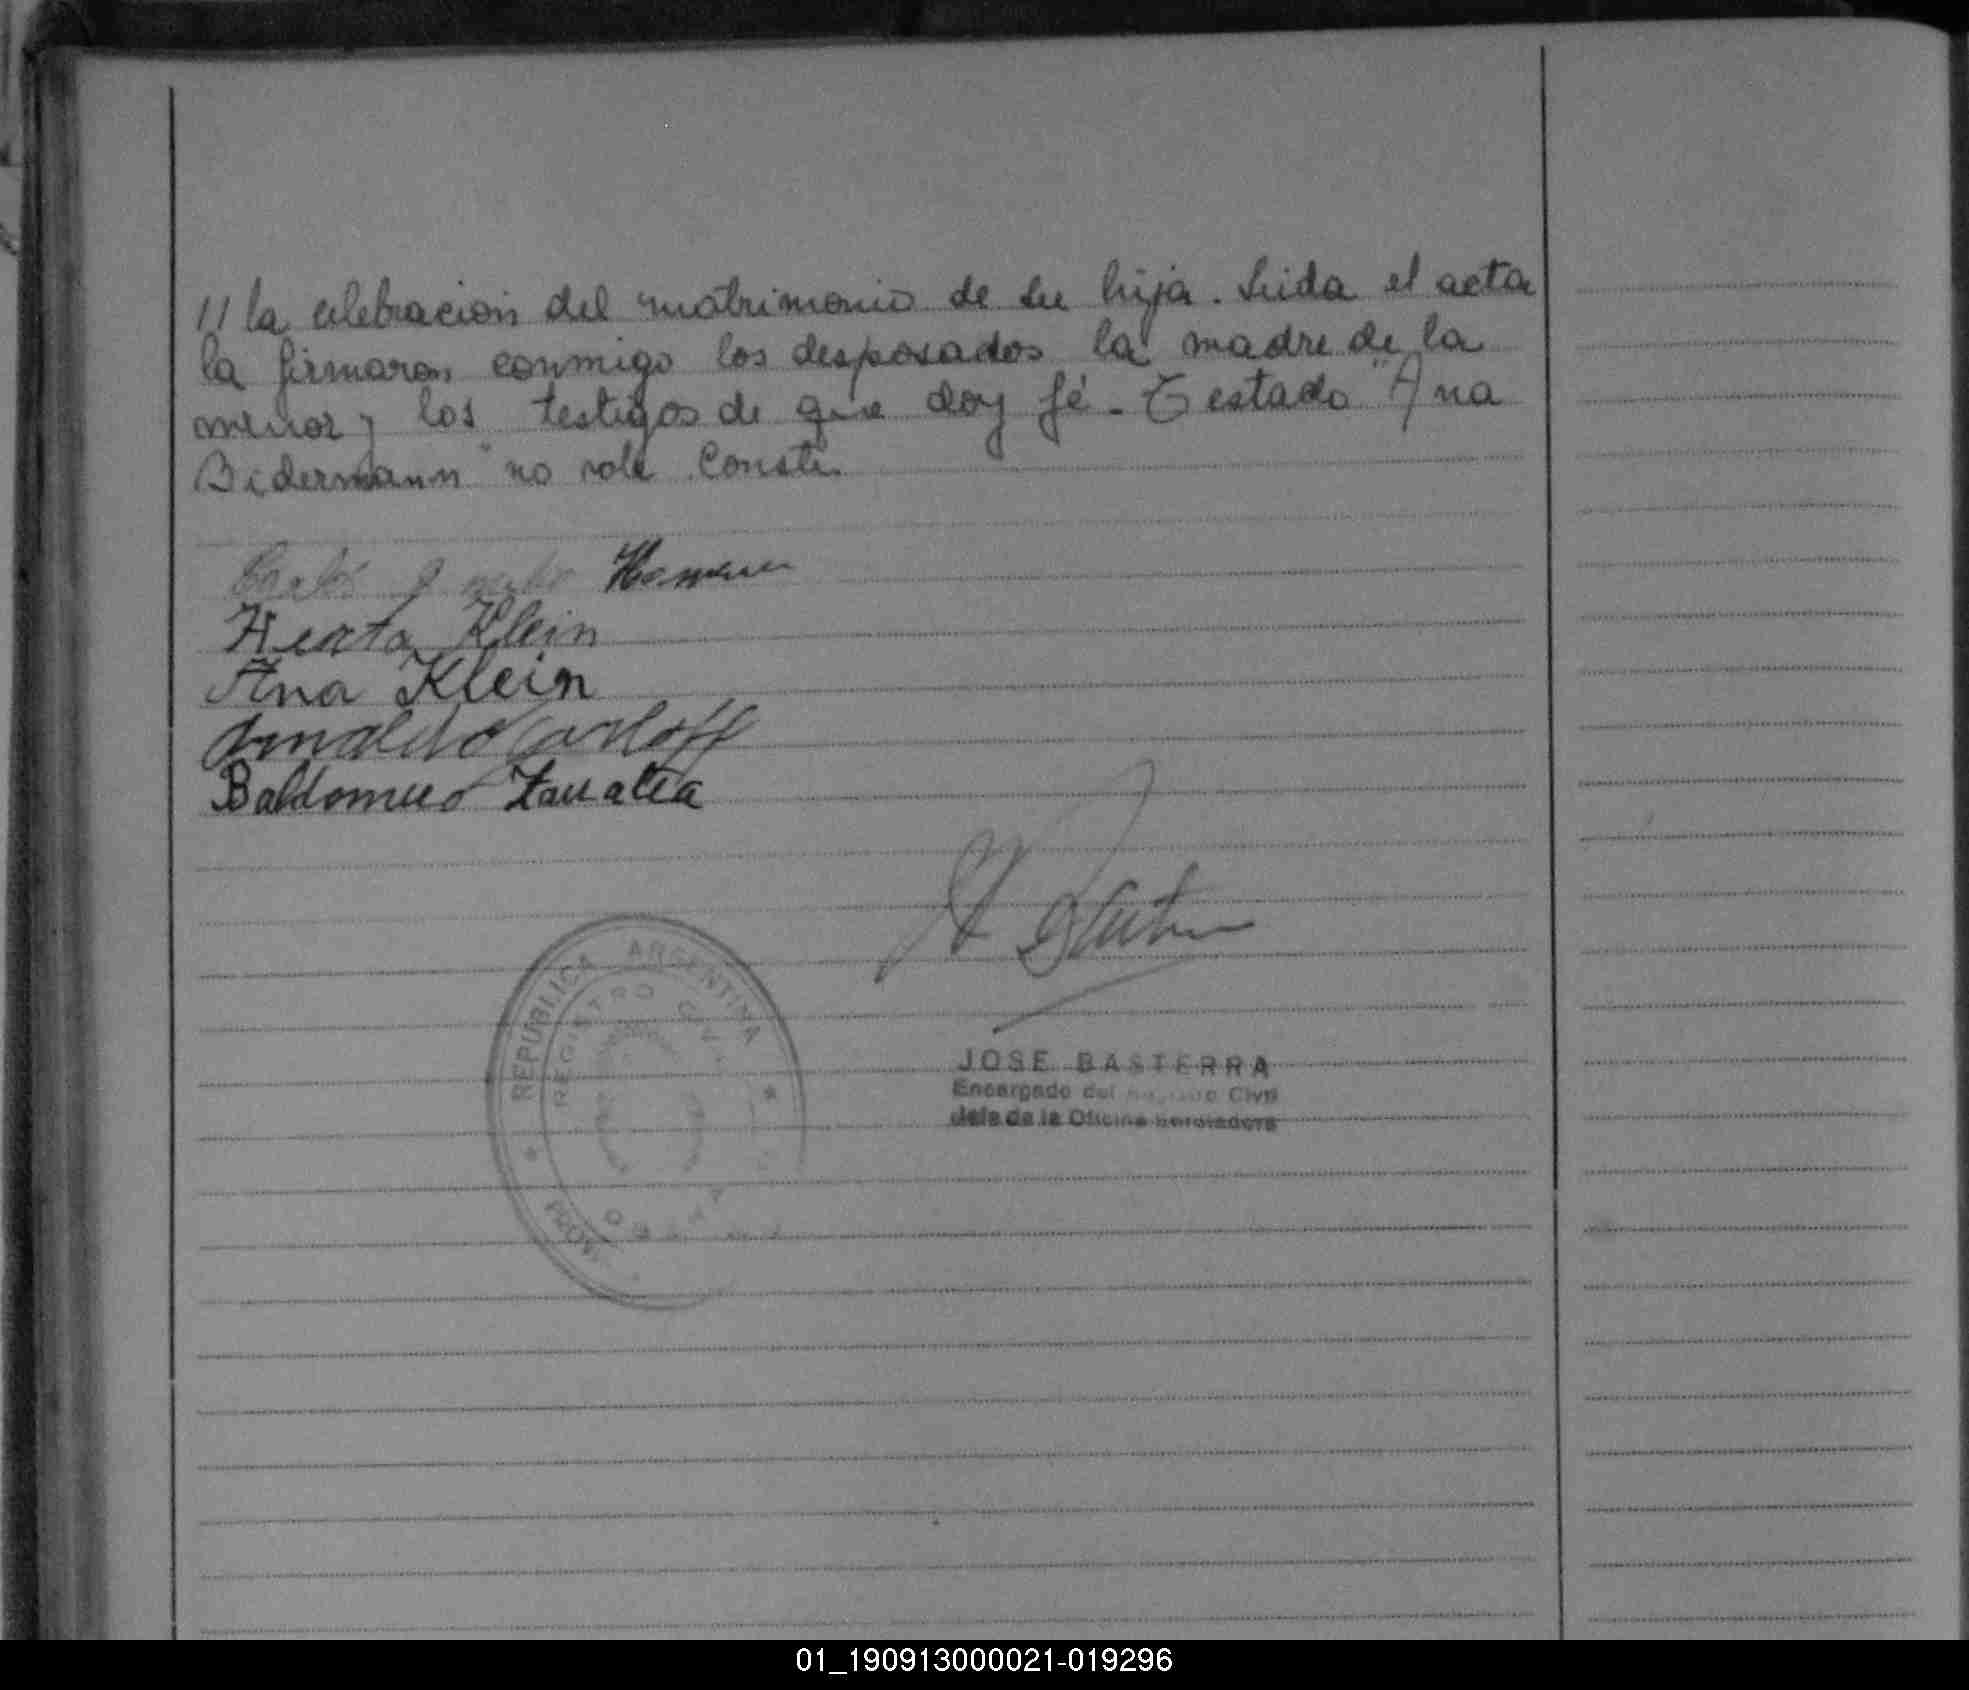 // la celebración del matrimonio de su hija. Leida el acta
la firmaron conmigo los desposados la madre de la
menor y los testigos de que doy fé. Testado "Ana
Bidermann" no vale. Conste.
Carlos
Herta Klein
Ana Klein
Arnaldo Carloff
Baldomero
REPUBLICA ARGENTINA
REGISTRO CIVIL
PROV.
JOSE BASTERRA
Encargado del Registro Civil
Jefe de la Oficina Enroladora
01_190913000021-019296